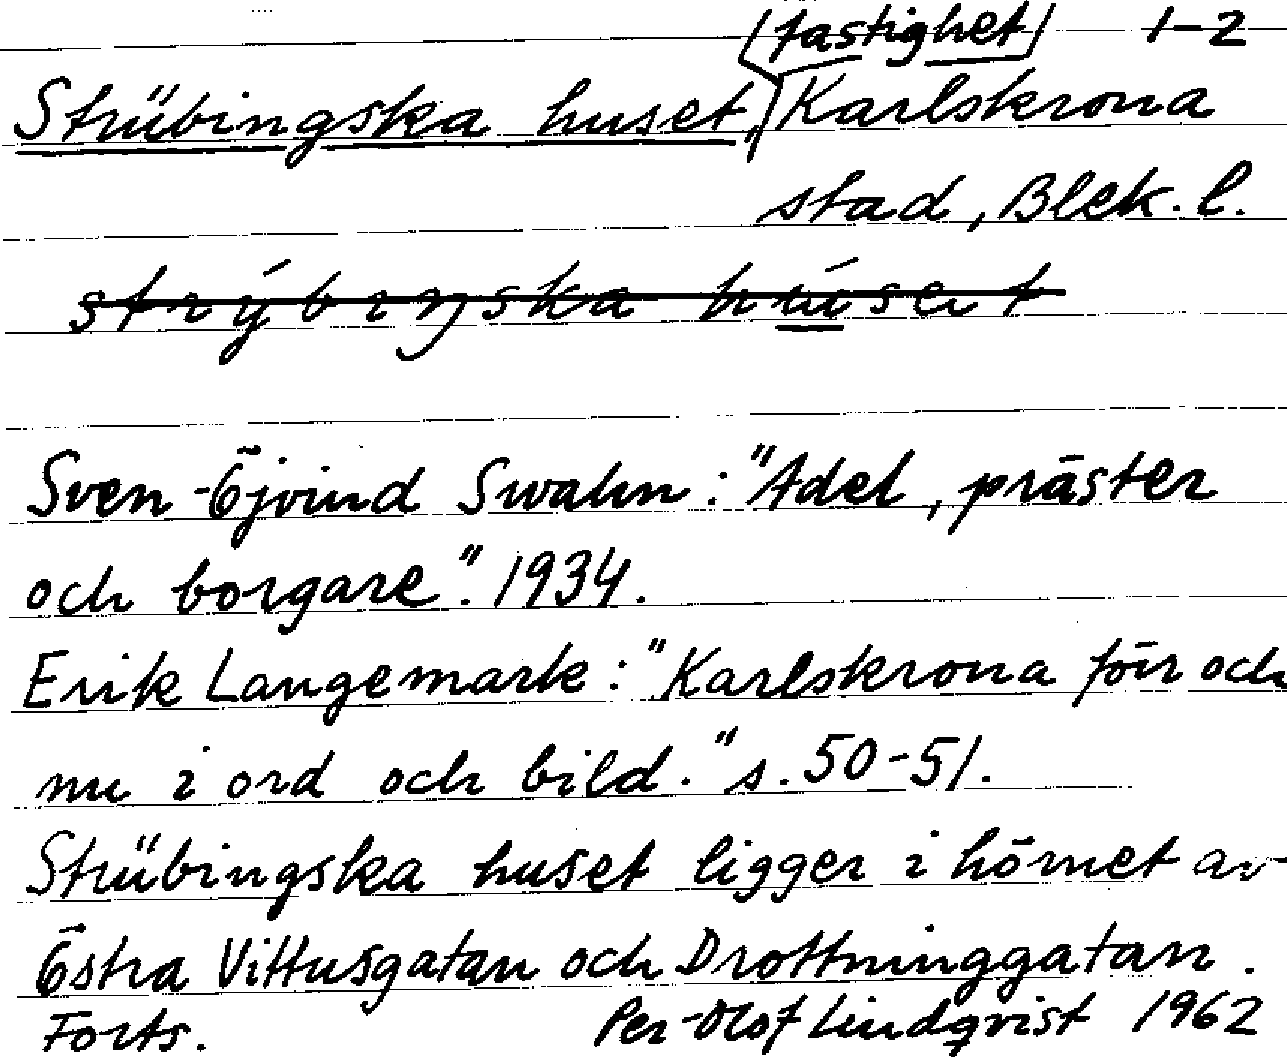 (fastighet) 1-2
Strübingska huset, Karlskrona
stad, Blek. l.
Sven-Öjvind Swahn: "Adel, präster
och borgare". 1934.
Erik Langemark: "Karlskrona förr och
nu i ord och bild." s. 50-51.
Strübingska huset ligger i hörnet av
Östra Vittusgatan och Drottninggatan.
Forts. Per-Olof Lindqvist 1962